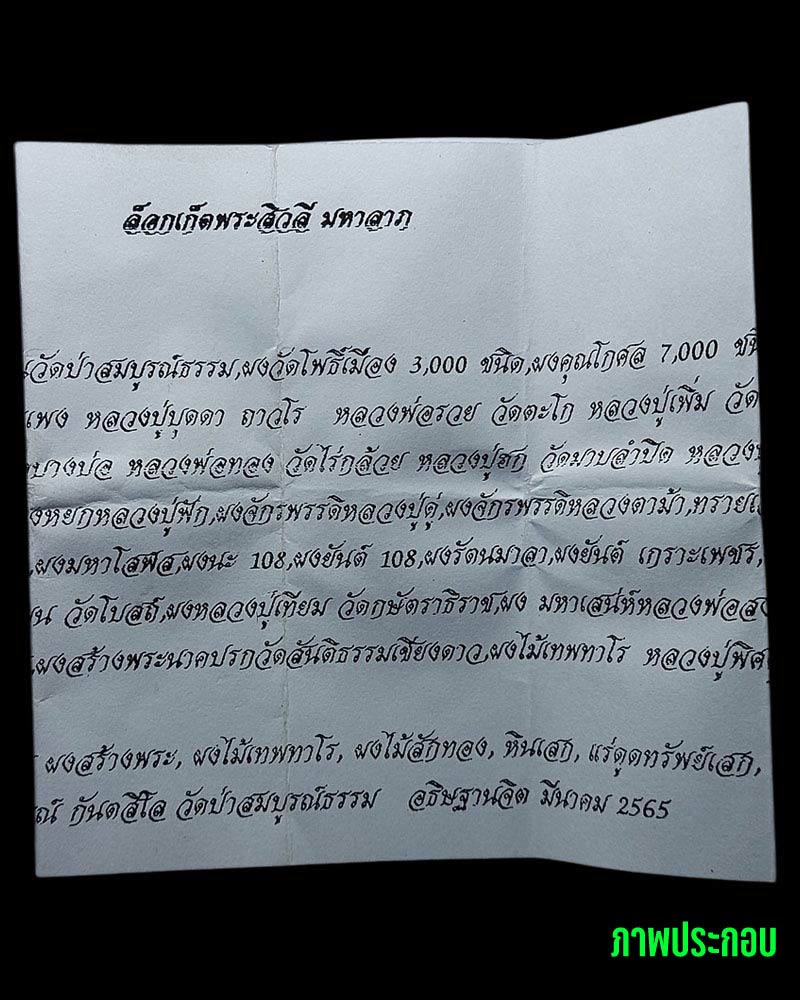 ล็อกเก็ตพระสิวลี มหาลาภ
วัดป่าสมบูรณ์ธรรม,ผงวัดโพธิ์เมือง 3,000 ชนิด,ผงคุณโกศล 7,000
เพง หลวงปู่บุดดา ถาวโร หลวงพ่อรวย วัดตะโก หลวงปู่เพิ่ม วัด
บางบ่อ หลวงพ่อทอง วัดไร่กล้วย หลวงปู่ฮก วัดมาบลำบิด
หยกหลวงปู่ฟัก,ผงจักรพรรดิหลวงปู่ดู่,ผงจักรพรรดิหลวงตาม้า,
,ผงมหาโสฬส,ผงนะ 108,ผงยันต์ 108,ผงรัตนมาลา,ผงยันต์ เกราะเพชร,
วัดโบสถ์,ผงหลวงปู่เทียม วัดกษัตราธิราช,ผง มหาเสน่ห์หลวงพ่อ
ผงสร้างพระนาคปรกวัดสันติธรรมเชียงดาว,ผงไม้เทพทาโร
ผงสร้างพระ, ผงไม้เทพทาโร, ผงไม้สักทอง, หินเสก, แร่ดูดทรัพย์เสก,
กันตสีโล วัดป่าสมบูรณ์ธรรม อธิษฐานจิต มีนาคม 2565
ภาพประกอบ